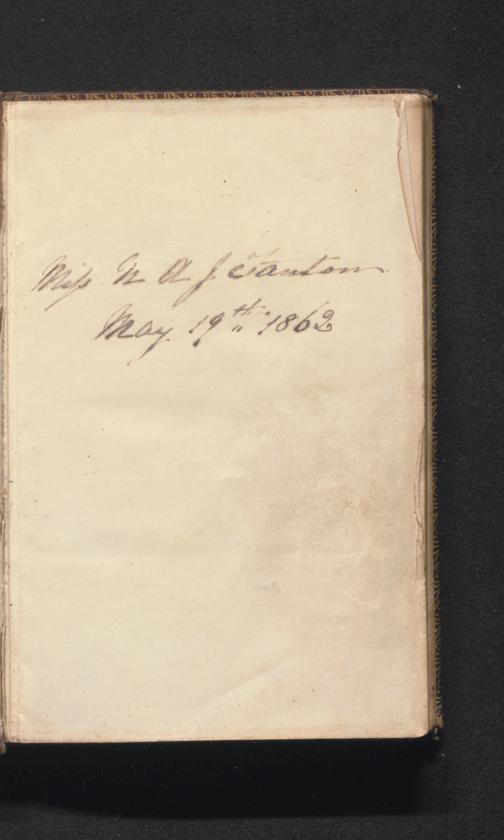 Miss N A J Stanton
May 19th 1862